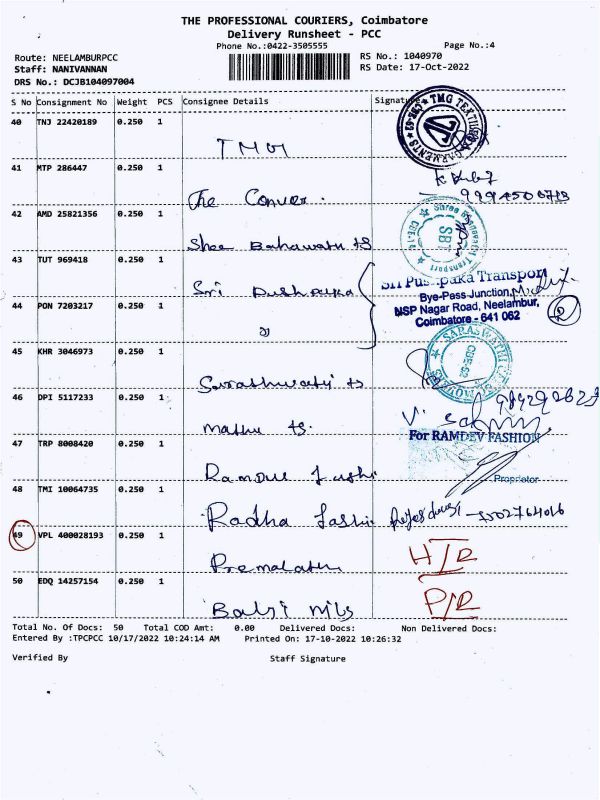 THE PROFESSIONAL COURIERS, Coimbatore
Delivery Runsheet - PCC
Phone No.:0422-3505555
Page No.:4
Route: NEELAMBURPCC
RS No.: 1040970
Staff: NANIVANNAN
RS Date: 17-Oct-2022
DRS No.: DCJB104097004
S No Consignment No Weight PCS Consignee Details Signature
40 TNJ 22420189 0.250 1
TMG
TMG TEXTILE GARMENTS
41 MTP 286447 0.250 1
The Conver.
42 AMD 25821356 0.250 1
Shree Bahawati ts
Shree Transport
SBT
43 TUT 969418 0.250 1
Sri Pushpaka
Sri Puspaka Transport
Bye-Pass Junction,
NSP Nagar Road, Neelambur,
Coimbatore - 641 062
44 PON 7203217 0.250 1
2
45 KHR 3046973 0.250 1
Sarashwathi ts
SARASWATHI
CBE-62
46 DPI 5117233 0.250 1
Mathu ts.
47 TRP 8008420 0.250 1
For RAMDEV FASHION
Proprietor
48 TMI 10064735 0.250 1
Radha Fashi
49 VPL 400028193 0.250 1
Premalatha
H/R
50 EDQ 14257154 0.250 1
Balaji mils
P/R
Total No. Of Docs: 50 Total COD Amt: 0.00 Delivered Docs: Non Delivered Docs:
Entered By :TPCPCC 10/17/2022 10:24:14 AM Printed On: 17-10-2022 10:26:32
Verified By Staff Signature